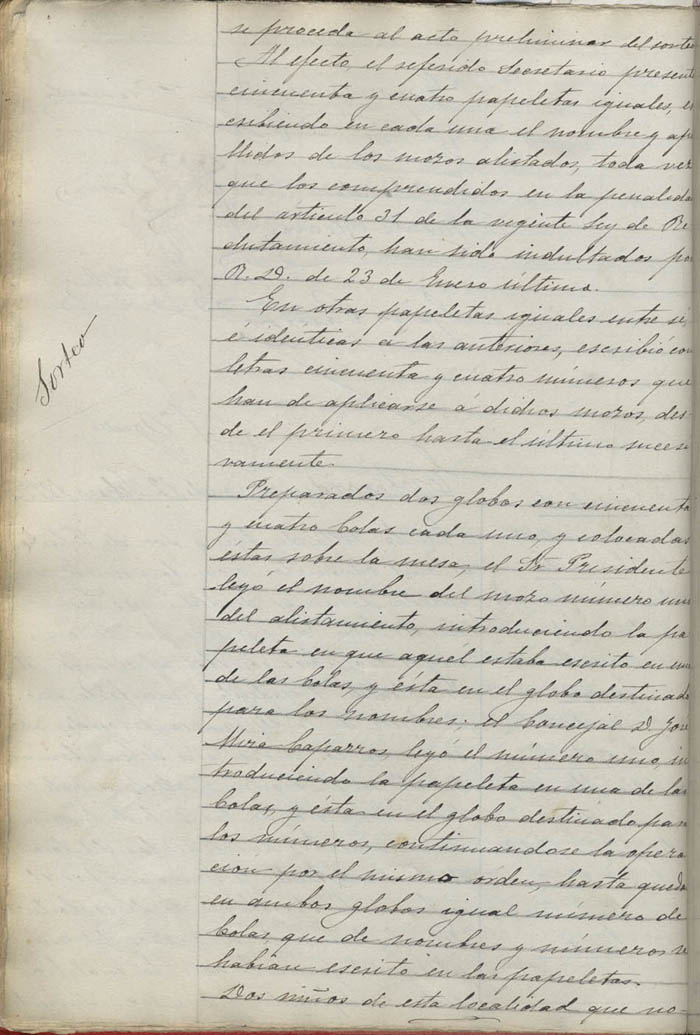 se proceda al acto preliminar del sorteo
Al efecto, el referido Secretario present
cincuenta y cuatro papeletas iguales, es
cribiendo en cada una el nombre y ape
llidos de los mozos alistados, toda vez
que los comprendidos en la penalida
del articulo 31 de la vigente Ley de Re
clutamiento, han sido indultados por
R. D. de 23 de Enero último.
En otras papeletas iguales entre si,
é idénticas a las anteriores, escribió con
letras cincuenta y cuatro números que
han de aplicarse á dichos mozos, des-
de el primero hasta el último sucesi
vamente.
Sorteo
Preparados dos globos con cincuenta
y cuatro bolas cada uno, y colocadas
éstas sobre la mesa, el Sr Presidente
leyó el nombre del mozo número uno
del alistamiento, introduciendo la pa
peleta en que aquel estaba escrito en una
de las bolas, y ésta en el globo destinado
para los nombres; el Concejal D. José
Mira Caparros, leyó el número uno, in
troduciendo la papeleta en una de las
bolas, y ésta en el globo destinado para
los números, continuandose la opera
ción por el mismo orden, hasta quedar
en ambos globos igual número de
bolas, que de nombres y números se
habían escrito en las papeletas.
Dos niños de esta localidad que no-